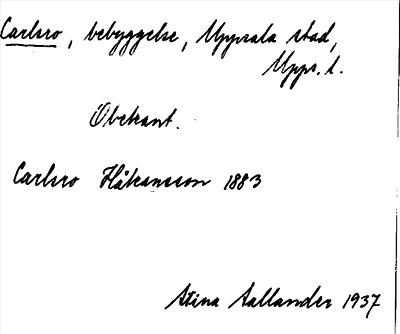 Carlsro, bebyggelse, Uppsala stad,
Upps. l.
Obekant.
Carlsro Håkansson 1883
Stina Sallander 1937